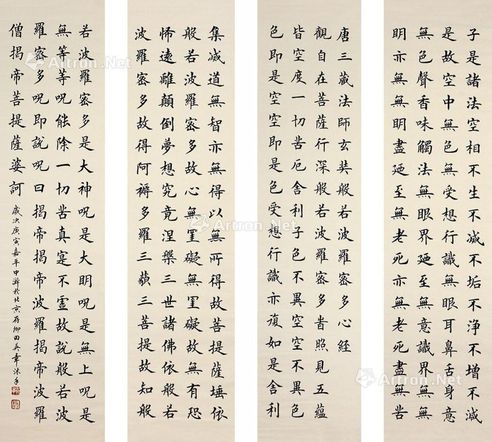 唐三藏法師玄奘般若波羅密多心經
觀自在菩薩行深般若波羅密多者照見五蘊
皆空度一切苦厄舍利子色不異空空不異色
色即是空空即是色受想行識亦復如是舍利
子是諸法空相不生不滅不垢不淨不增不減
是故空中無色無受想行識無眼耳鼻舌身意
無色聲香味觸法無眼界廼至無意識界無無
明亦無無明盡廼至無老死亦無老死盡無苦
集滅道無智亦無得以無所得故菩提薩埵依
般若波羅密多故心無罣礙無罣礙故無有恐
怖遠離顛倒夢想究竟涅槃三世諸佛依般若
波羅密多故得阿褥多羅三藐三菩提故知般
若波羅密多是大神呪是大明呪是無上呪是
無等等呪能除一切苦真實不虛故說般若波
羅密多呪即說呪曰揭帝揭帝波羅揭帝波羅
僧揭帝菩提薩婆訶
歲次庚寅嘉平中澣於北京田英章沐手
Artron.Net